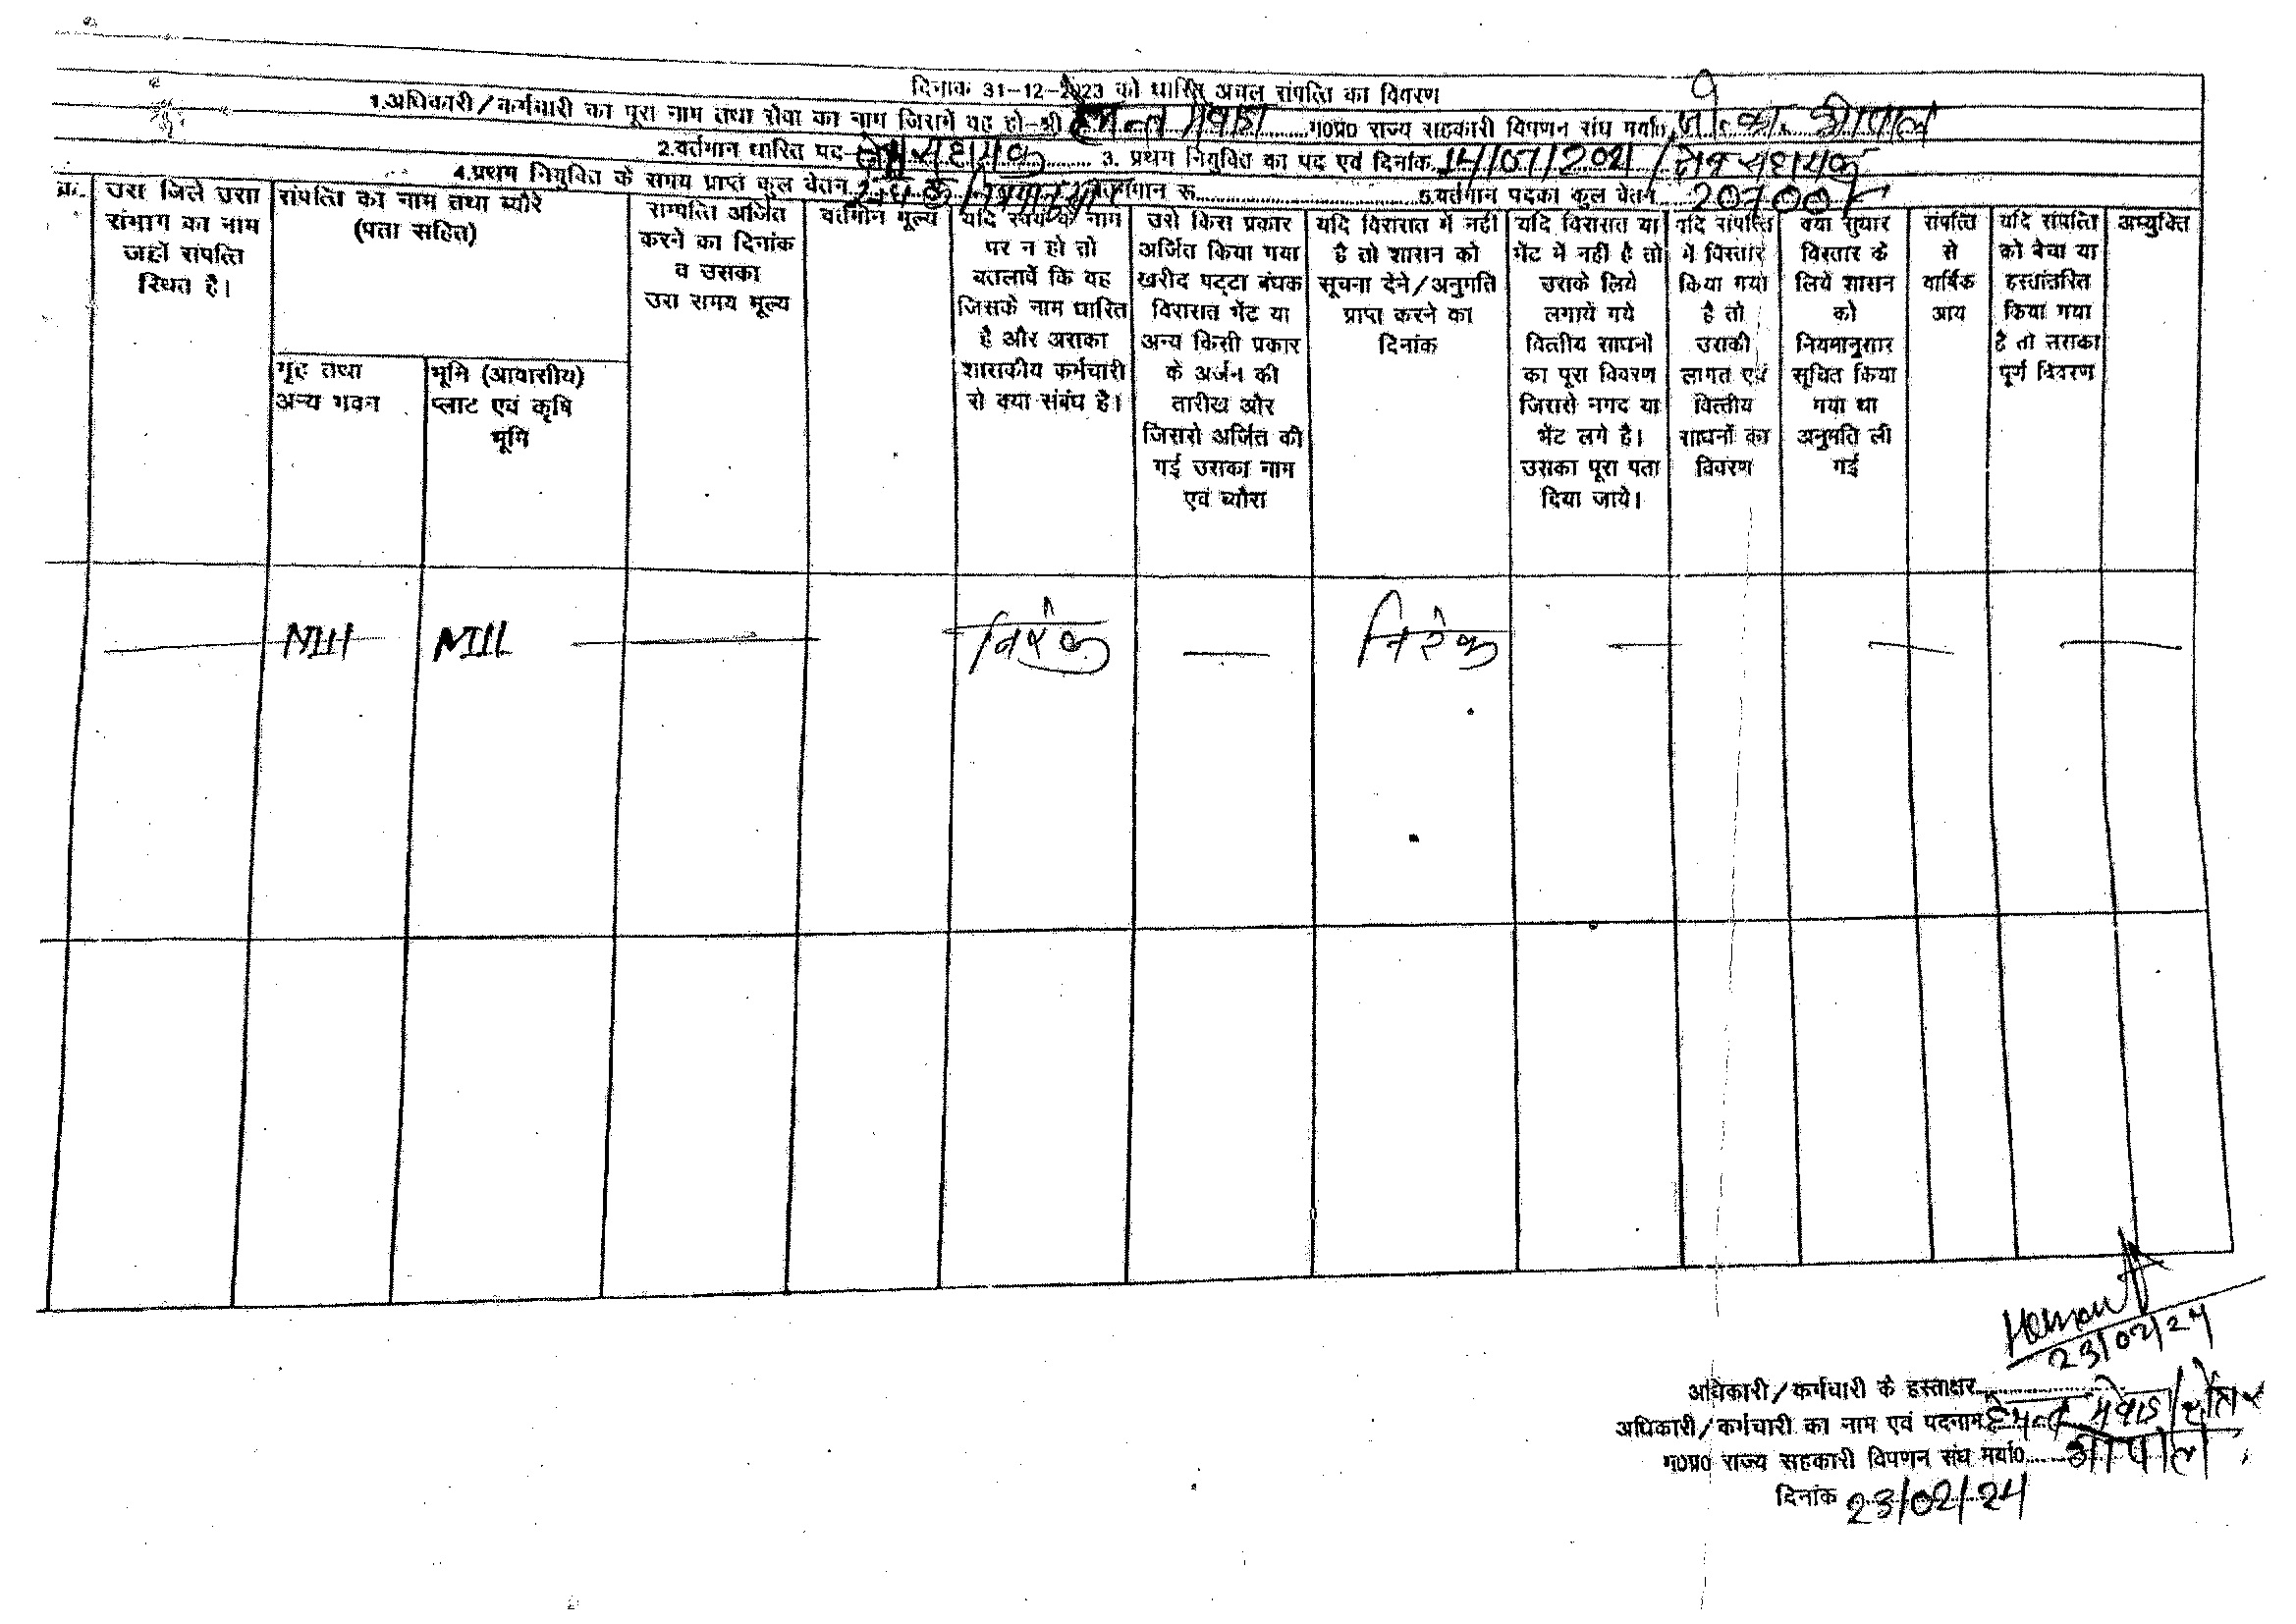 दिनांक 31-12-2023 को धारित अचल संपत्ति का विवरण
1.अधिकारी/कर्मचारी का पूरा नाम तथा सेवा का नाम जिसमें वह हो-श्री हेमन्त मेवाडा म0प्र0 राज्य सहकारी विपणन संघ मर्या0, जो. का. भोपाल
2.वर्तमान धारित पद क्षेत्र सहायक 3. प्रथम नियुक्ति का पद एवं दिनांक 14/07/2021/क्षेत्र सहायक
4.प्रथम नियुक्ति के समय प्राप्त कुल वेतन वेतनमान रू. 5.वर्तमान पदका कुल वेतन 20700/-
क्र. उस जिले उस संभाग का नाम जहाँ संपत्ति स्थित है।
संपत्ति का नाम तथा ब्यौरे (पता सहित)
गृह तथा अन्य भवन
भूमि (आवासीय) प्लाट एवं कृषि भूमि
सम्पत्ति अर्जित करने का दिनांक व उसका उस समय मूल्य
वर्तमान मूल्य
यदि स्वयं के नाम पर न हो तो बतलावें कि वह जिसके नाम धारित है और उसका शासकीय कर्मचारी से क्या संबंध है।
उसे किस प्रकार अर्जित किया गया खरीद पट्टा बंधक विरासत भेंट या अन्य किसी प्रकार के अर्जन की तारीख और जिससे अर्जित की गई उसका नाम एवं ब्यौरा
यदि विरासत में नहीं है तो शासन को सूचना देने/अनुमति प्राप्त करने का दिनांक
यदि विरासत या भेंट में नहीं है तो उसके लिये लगाये गये वित्तीय साधनों का पूरा विवरण जिससे नगद या भेंट लगे है। उसका पूरा पता दिया जाये।
यदि संपत्ति में विस्तार किया गया है तो उसकी लागत एवं वित्तीय साधनों का विवरण
क्या सुधार विस्तार के लिये शासन को नियमानुसार सूचित किया गया था अनुमति ली गई
संपत्ति से वार्षिक आय
यदि संपत्ति को बेचा या हस्तांतरित किया गया है तो उसका पूर्ण विवरण
अभ्युक्ति
— NIll NIIL — निरंक — निरंक — — —
Hemant
23/02/24
अधिकारी/कर्मचारी के हस्ताक्षर
अधिकारी/कर्मचारी का नाम एवं पदनाम हेमन्त मेवाडा
म0प्र0 राज्य सहकारी विपणन संघ मर्या0 भोपाल
दिनांक 23/02/24